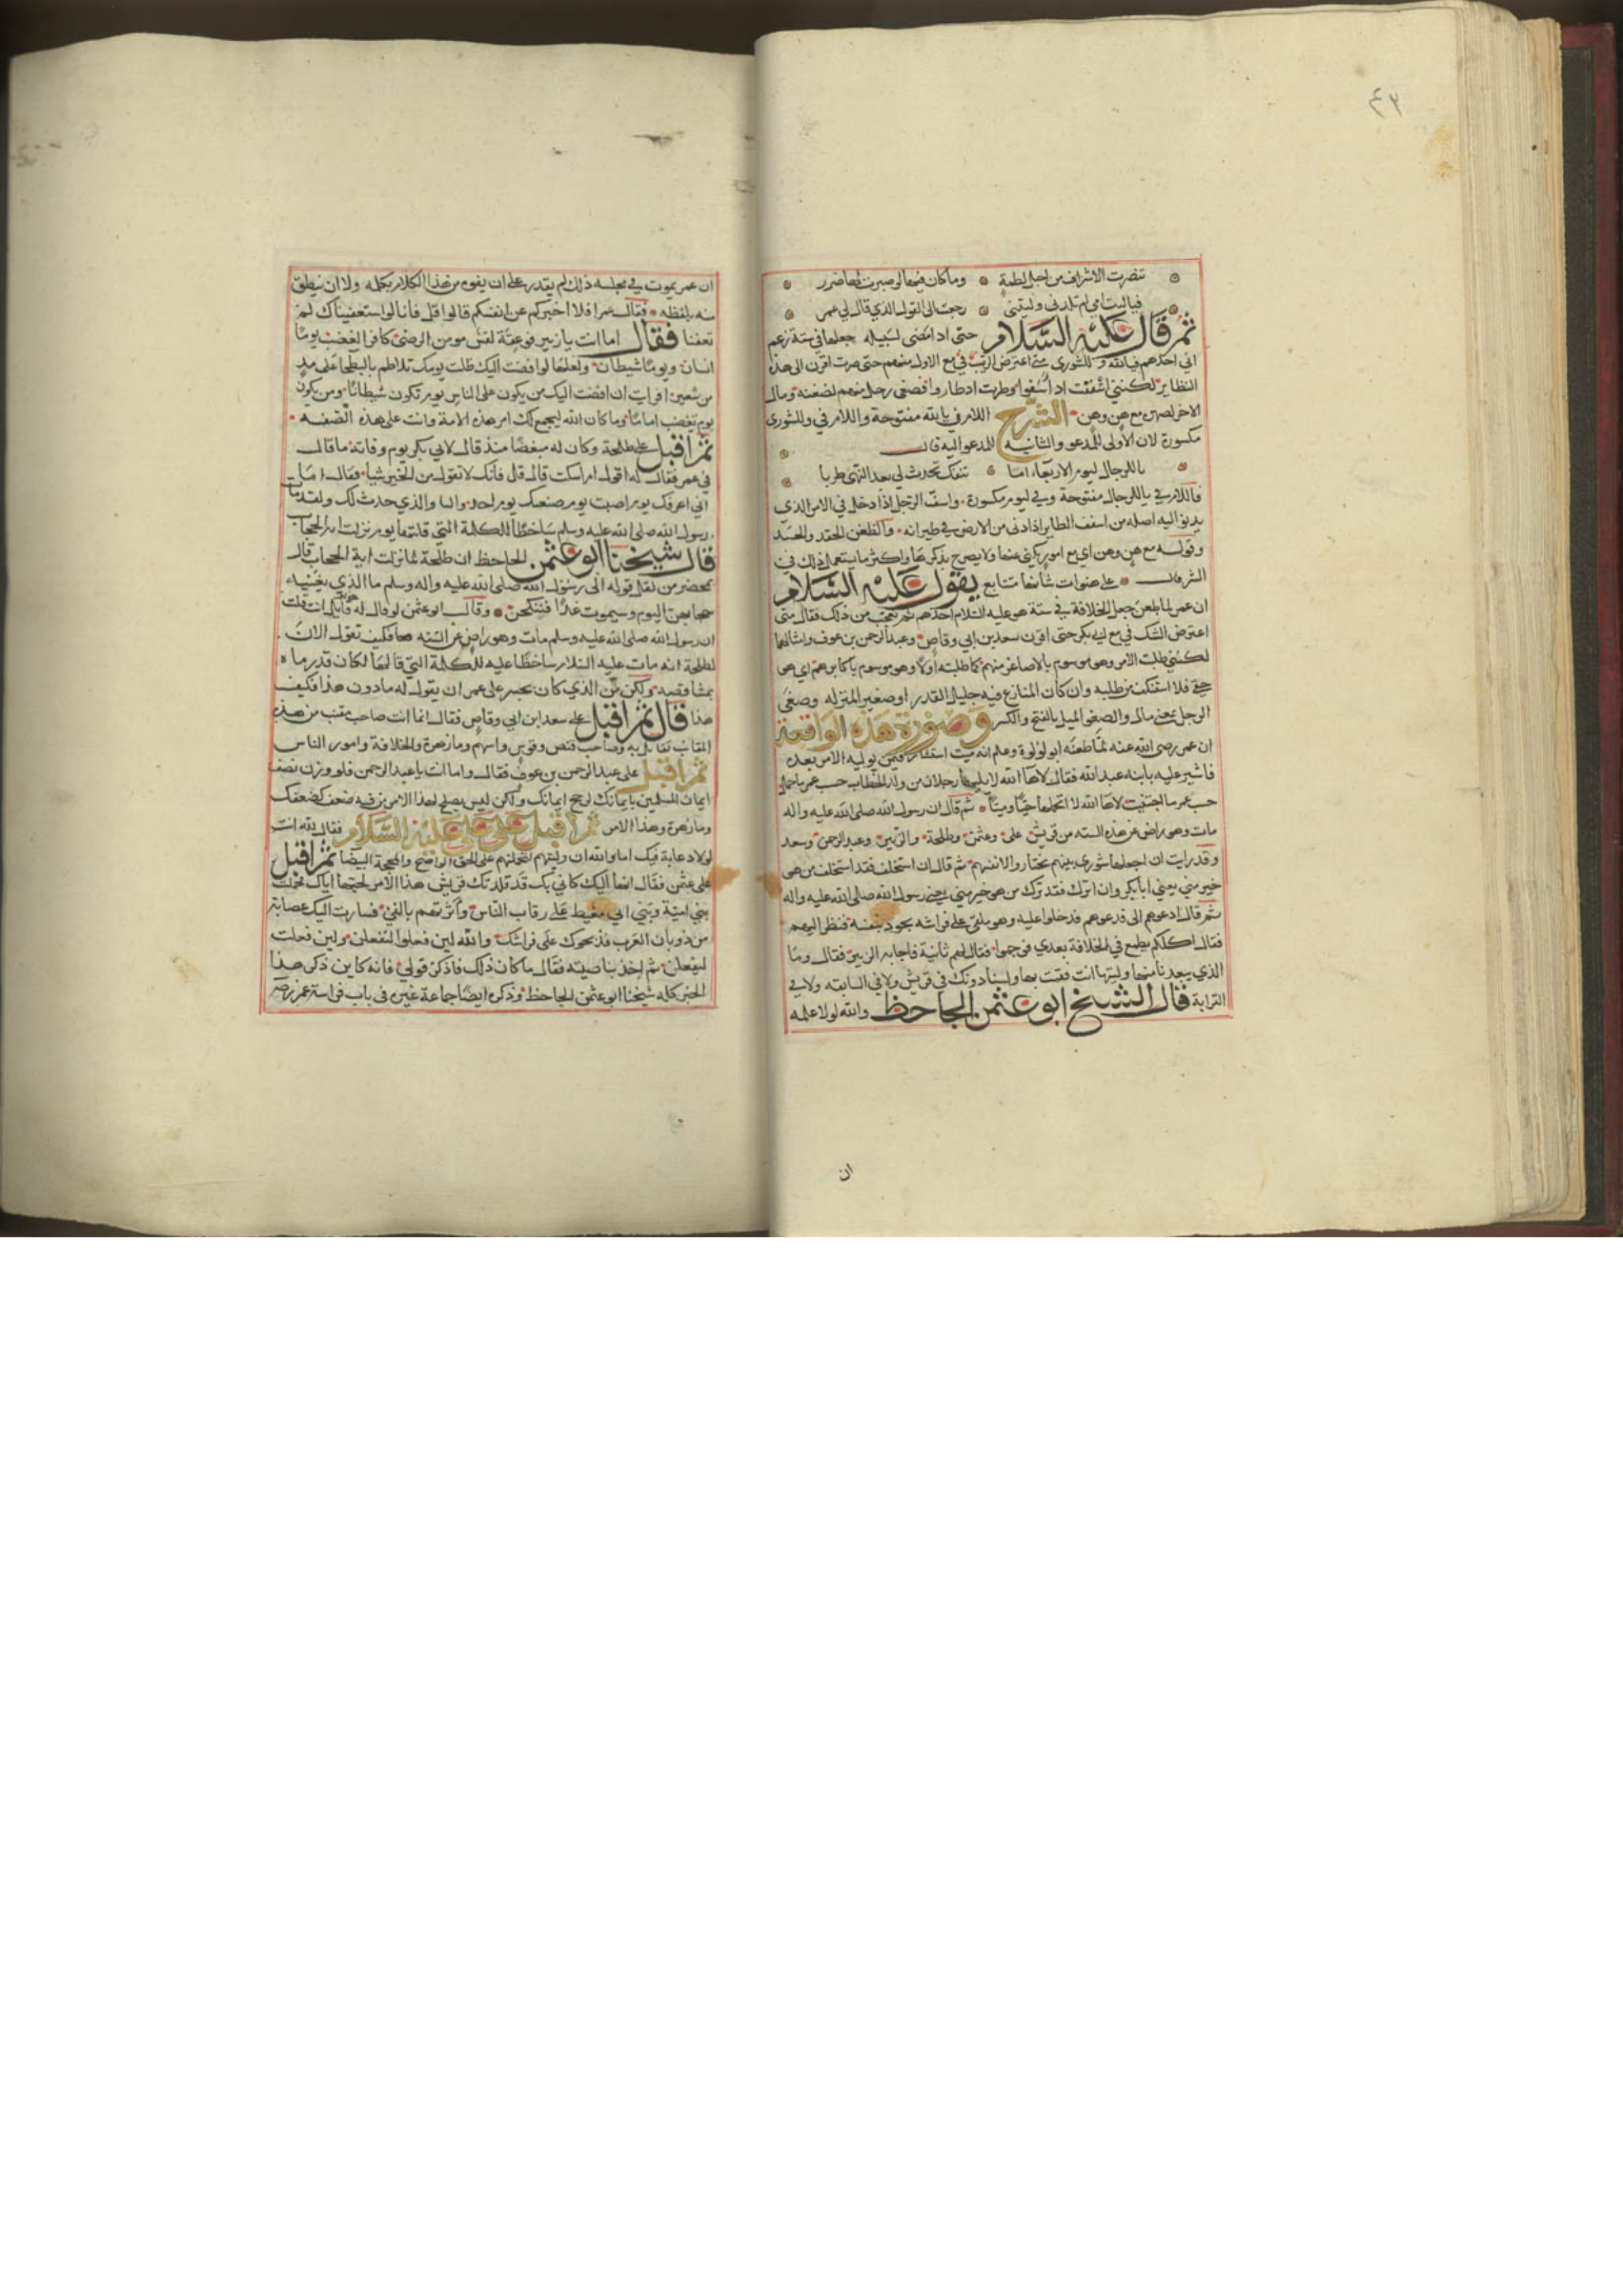 ٤٣
تنصرت الاشراف من اجل لطمة وما كان فيها لو صبرت لها ضرر
فيا ليت امي لم تلدني وليتني رجعت الى القول الذي قال لي عمر
ثم قال عليه السلام حتى اذا مضى لسبيله جعلها في ستة زعم
اني احدهم فيالله وللشورى متى اعترض الريب في مع الاول منهم حتى صرت اقرن الى هذه
النظاير لكنني اسففت اذ اسفوا وطرت اذ طاروا فصغى رجل منهم لضغنه ومال
الاخر لصهره مع هن وهن الشرح اللام في يا لله مفتوحة واللام في وللشورى
مكسورة لان الاولى للمدعو والثانيه للمدعو اليه قال
يا للرجال ليوم الاربعاء اما تنفك تحدث لي بعد النهى طربا
فاللام في يا للرجال مفتوحة وفي ليوم مكسورة واسف الرجل اذا دخل في الامر الدني
اصله من اسف الطاير اذا دنى من الارض في طيرانه والضغن الحقد والحسد
وقوله مع هن وهن اي مع امور يكنى عنها ولا يصرح بذكرها واكثر ما يستعمل ذلك في
الشر قال على هنوات شانها متتابع يقول عليه السلام
ان عمر لما طعن جعل الخلافة في ستة هو عليه السلام احدهم ثم تعجب من ذلك فقال متى
اعترض الشك في مع ابي بكر حتى اقرن سعد بن ابي وقاص وعبد الرحمن بن عوف وامثالهما
لكنني طلبت الامر وهو موسوم بالاصاغر منهم كما طلبته اولا وهو موسوم باكابرهم اي هو
حقي فلا استنكف من طلبه وان كان المنازع فيه جليل القدر او صغير المنزله وصغى
الرجل بمعنى مال والصغو الميل بالفتح والكسر وصورة هذه الواقعة
ان عمر رضي الله عنه لما طعنه ابو لولوة وعلم انه ميت استشار فيمن يوليه الامر بعده
فاشير عليه بابنه عبد الله فقال لاها الله لا يليها رجلان من ولد الخطاب حسب عمر ما حمل
حسب عمر ما احتقب لاها الله لا اتحملها حيا وميتا ثم قال ان رسول الله صلى الله عليه واله
مات وهو راض عن هذه الستة من قريش علي وعثمن وطلحة والزبير وعبد الرحمن وسعد
وقد رايت ان اجعلها شورى بينهم ليختاروا لانفسهم ثم قال ان استخلف فقد استخلف من هو
خير مني يعني ابا بكر وان اترك فقد ترك من هو خير مني يعني رسول الله صلى الله عليه واله
ثم قال ادعوهم الي فدعوهم فدخلوا عليه وهو ملقى على فراشه يجود بنفسه فنظر اليهم
فقال اكلكم يطمع في الخلافة بعدي فوجموا فقال لهم ثانية فاجابه الزبير فقال وما
الذي يبعدنا منها وليتها انت فقمت بها ولسنا دونك في قريش ولا في السابقه ولا في
القرابة قال الشيخ ابو عثمن الجاحظ والله لولا علمه
ان
ان عمر يموت في مجلسه ذلك لم يقدر على ان يفوه من هذا الكلام بكلمه ولا ان ينطق
منه بلفظه فقال عمر افلا اخبركم عن انفسكم قالوا قل فانا لو استعفيناك لم
تعفنا فقال اما انت يا زبير فوعقة لقس مومن الرضى كافر الغضب يوما
انسان ويوما شيطان ولعلها لو افضت اليك ظلت يومك تلاطم بالبطحا على مد
من شعير افرايت ان افضت اليك من يكون على الناس يوم تكون شيطانا ومن يكون
يوم تغضب اماما وما كان الله ليجمع لك امر هذه الامة وانت على هذه الصفه
ثم اقبل على طلحة وكان له مبغضا منذ قال لابي بكر يوم وفاته ما قال
في عمر فقال له اقول ام اسكت قال قل فانك لا تقول من الخير شيا فقال اما
اني اعرفك يوم اصيبت اصبعك يوم احد والذي حدث لك ولقد مات
رسول الله صلى الله عليه وسلم ساخطا للكلمة التي قلتها يوم نزلت اية الحجاب
قال شيخنا ابو عثمن الجاحظ ان طلحة لما نزلت اية الحجاب قال
بمحضر من نقل قوله الى رسول الله صلى الله عليه واله وسلم ما الذي يغنيه
حجابهن اليوم وسيموت غدا فننكحهن وقال ابو عثمن لو قال له قايل انت قلت
ان رسول الله صلى الله عليه وسلم مات وهو راض عن الستة فكيف تقول الان
لطلحة انه مات عليه السلام ساخطا عليه للكلمة التي قالها لكان قد رماه
بمشاقصه ولكن من الذي كان يجسر على عمر ان يقول له ما دون هذا فكيف
هذا قال ثم اقبل على سعد ابن ابي وقاص فقال انما انت صاحب مقنب من هذه
المقانب تقاتل به وصاحب قنص وقوس واسهم وما زهرة والخلافة وامور الناس
ثم اقبل على عبد الرحمن بن عوف فقال واما انت يا عبد الرحمن فلو وزن نصف
ايمان المسلمين بايمانك لرجح ايمانك ولكن ليس يصلح هذا الامر لمن فيه ضعف كضعفك
وما زهرة وهذا الامر ثم اقبل على علي عليه السلام فقال لله انت
لولا دعابة فيك اما والله ان وليتهم لتحملنهم على الحق الواضح والمحجة البيضا ثم اقبل
على عثمن فقال هيها اليك كاني بك قد قلدتك قريش هذا الامر لحبها اياك فحملت
بني امية وبني ابي معيط على رقاب الناس واثرتهم بالفي فسارت اليك عصابة
من ذوبان العرب فذبحوك على فراشك والله لين فعلوا لتفعلن ولين فعلت
ليفعلن ثم اخذ بناصيته فقال ما كان ذلك فاذكر قولي فانه كاين ذكر هذا
الخبر كله شيخنا ابو عثمن الجاحظ وذكره ايضا جماعة غيره في باب فراسة عمر رضه